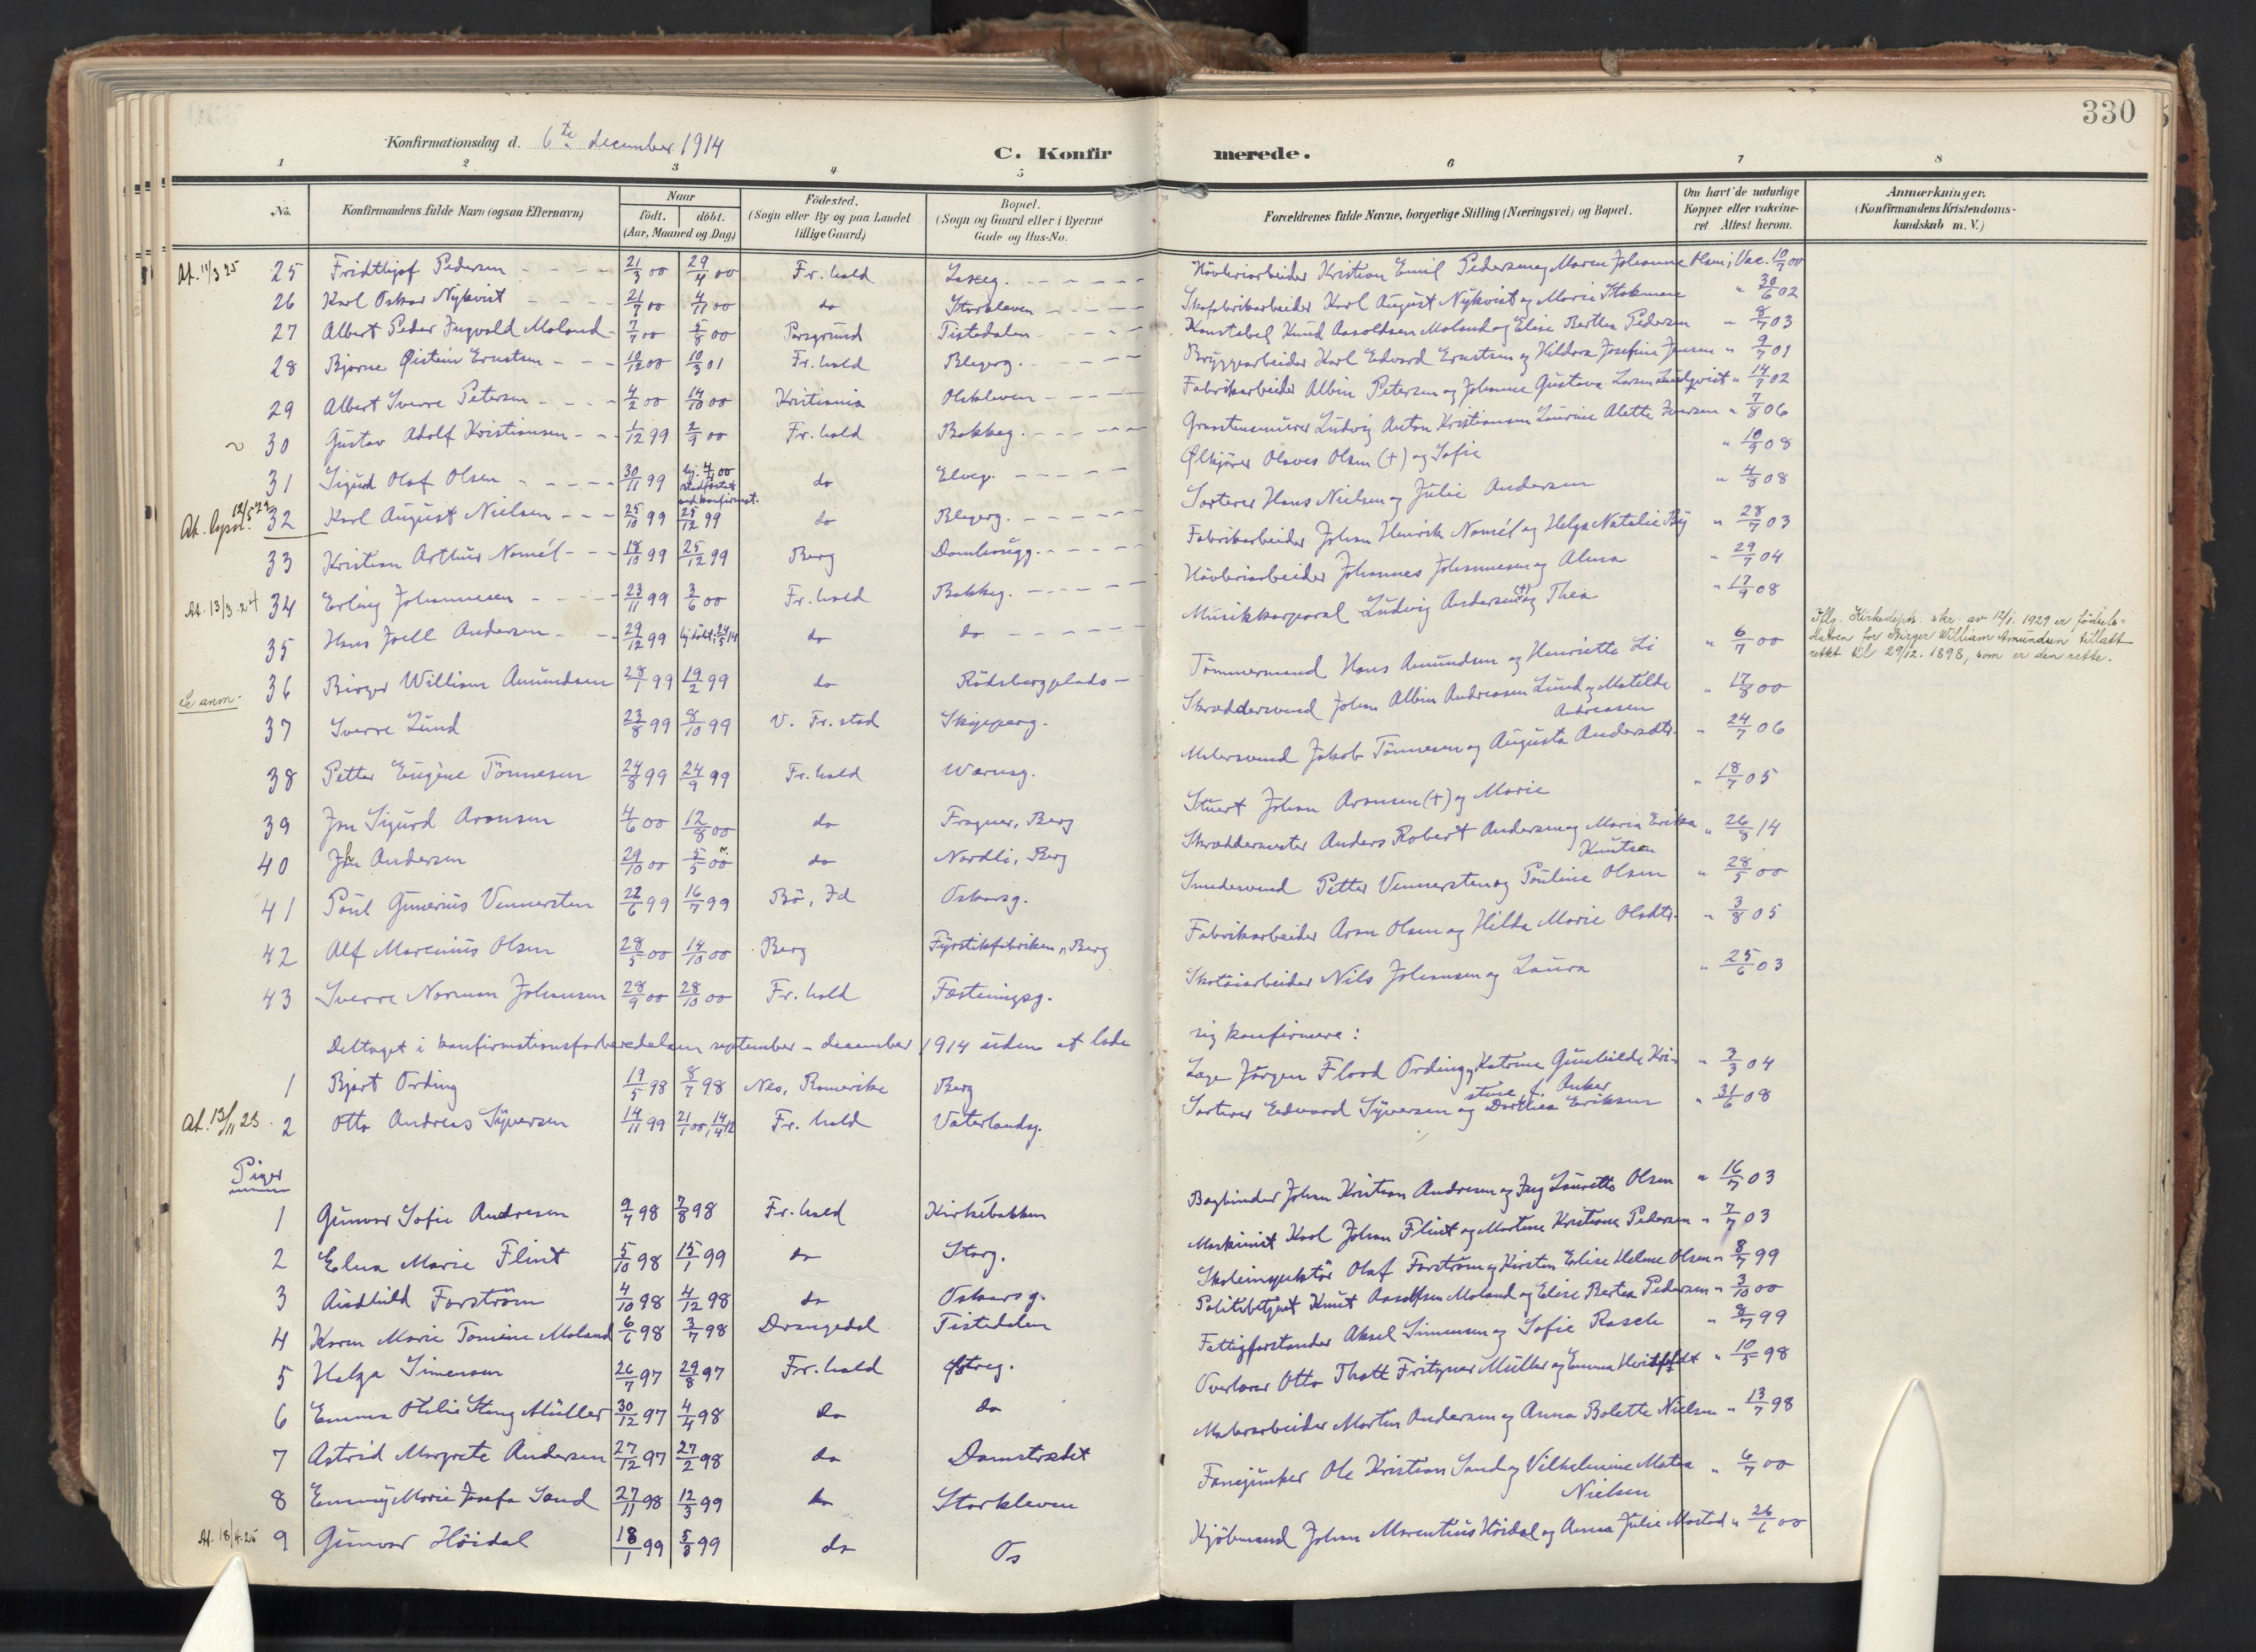 330
Konfirmationsdag d. 6te december 1914
C. Konfirmerede.
1 2 3 4 5 6 7 8
No. Konfirmandens fulde Navn (ogsaa Efternavn) Naar født. døbt. (Aar, Maaned og Dag) Fødested. (Sogn eller By og paa Landet tillige Gaard) Bopæl. (Sogn og Gaard eller i Byerne Gade og Hus-No. Forældrenes fulde Navne, borgerlige Stilling (Næringsvei) og Bopæl. Om havt de naturlige Kopper eller vakcineret Attest herom. Anmærkninger. (Konfirmandens Kristendomskundskab m. V.)
At. 11/3 25 25 Fridthjof Pedersen 21/3 00 29/4 00 Fr.hald Høvleriarbeider Kristian Emil Pedersen og Maren Johanne Olsen; Vac. 10/7 00
26 Karl Oskar Nykvist 21/7 00 4/11 00 do Storkleven Skofabrikarbeider Karl August Nykvist og Marie Stokman " 30/6 02
27 Albert Peder Ingvald Moland 7/7 00 5/8 00 Porsgrund Tistedalen Konstabel Knud Aasoldsen Moland og Elise Berthea Pedersen " 8/7 03
28 Bjarne Øistein Ernstsen 10/12 00 10/3 01 Fr.hald Blegerg. Bryggearbeider Karl Edvard Ernstsen og Hildora Josefine Jensen " 9/7 01
29 Albert Sverre Petersen 4/2 00 14/10 00 Kristiania Olskleven Fabrikarbeider Albin Petersen og Johanne Gustava Larsen Lundqvist " 14/7 02
30 Gustav Adolf Kristiansen 1/12 99 2/9 00 Fr.hald Bakkeg. Graastensmurer Ludvig Anton Kristiansen Laurine Alette Iversen " 7/8 06
31 Sigurd Olaf Olsen 30/11 99 hj. 4/4 00 stadfæstet ved konfirmat. do Elveg. Ølkjører Olaves Olsen (+) og Sofie " 10/9 08
At. 12/5 32 Karl August Nielsen 25/10 99 25/12 99 do Blegerg. Sorterer Hans Nielsen og Julie Andersen " 4/8 08
33 Kristian Arthur Nomél 18/10 99 25/12 99 Berg Dambrugg. Fabrikarbeider Johan Henrik Nomél og Helga Natalie By " 28/7 03
At. 13/3 24 34 Erling Johannesen 23/11 99 3/6 00 Fr.hald Bakkeg. Høvleriarbeider Johannes Johannesen og Alma " 29/7 04
35 Hans Joell Andersen 29/12 99 hj.døbt 24/5 14 do do Musikkorporal Ludvig Andersen (+) og Thea " 17/9 08
Se anm. 36 Birger William Amundsen 28/1 99 19/2 99 do Rødsbergplads Tømmermand Hans Amundsen og Henriette Li " 6/7 00 Iflg. Kirkedepts. skr. av 12/1. 1929 er fødselsdatoen for Birger William Amundsen tillatt rettet til 29/12. 1898, som er den rette.
37 Sverre Lund 23/8 99 8/10 99 V. Fr.stad Skipperg. Skræddersvend Johan Albin Andreasen Lund og Matilde Andreasen " 17/8 00
38 Petter Eugène Tønnesen 24/8 99 24/9 99 Fr.hald Wærnsg. Malersvend Jakob Tønnesen og Augusta Andersdtr. " 24/7 06
39 Jon Sigurd Aronsen 4/6 00 12/8 00 do Frogner, Berg Stuert Johan Aronsen (+) og Marie " 18/7 05
40 John Andersen 29/10 00 5/5 00 do Nordli, Berg Skræddermester Anders Robert Andersen og Maria Erika Knutsen " 26/8 14
41 Paul Gunerius Vennersten 22/6 99 16/7 99 Bø, Id Oskarsg. Smedesvend Petter Vennersten og Pauline Olsen " 28/5 00
42 Alf Marenius Olsen 28/5 00 14/10 00 Berg Fyrstikfabriken, Berg Fabrikarbeider Aron Olsen og Hilda Marie Olsdtr. " 3/8 05
43 Sverre Norman Johansen 28/9 00 28/10 00 Fr.hald Fæstningsg. Skotøiarbeider Nils Johansen og Laura " 25/6 03
Deltaget i konfirmationsforberedelsen september - december 1914 uden at lade sig konfirmere:
1 Bjart Ording 19/5 98 8/7 98 Nes, Romerike Berg Læge Jørgen Flood Ording og Katrine Gunhilde Kristine f. Anker " 3/3 04
At. 13/11 23. 2 Otto Andreas Syversen 14/11 99 21/1 00, 14/4 12 Fr. hald Vaterlandsg. Sorterer Edvard Syversen og Dorthea Eriksen " 31/6 08
Piger
1 Gunvor Sofie Andresen 9/7 98 7/8 98 Fr.hald Kirkebakken Bogbinder Johan Kristian Andresen og Ing Lauritta Olsen " 16/7 03
2 Edna Marie Flint 5/10 98 15/1 99 do Storg. Maskinist Karl Johan Flint og Martine Kristiane Pedersen " 7/7 03
3 Audhild Forstrøm 4/10 98 4/12 98 do Oskarsg. Skoleinspektør Olaf Forstrøm og Kirsten Elise Helene Olsen " 8/7 99
4 Karen Marie Tomine Moland 6/6 98 3/7 98 Drangedal Tistedalen Politibetjent Knut Aasolfsen Moland og Elise Bertea Pedersen " 3/10 00
5 Helga Simensen 26/7 97 29/8 97 Fr.hald Østreg. Fattigforstander Aksel Simensen og Sofie Rasch " 8/7 99
6 Emma Otilie Stang Müller 30/12 97 4/4 98 do do Overlærer Otto Thott Fritzner Müller og Emma Hvitfeldt " 10/5 98
7 Astrid Margrete Andersen 27/12 97 27/2 98 do Damstrædet Malerarbeider Martin Andersen og Anna Bolette Nielsen " 13/7 98
8 Emmy Marie Josefa Sand 27/11 98 12/3 99 do Storkleven Fanejunker Ole Kristian Sand og Vilhelmine Matea Nielsen " 6/7 00
At. 18/4 25 9 Gunvor Høidal 18/1 99 5/3 99 do Os Kjøbmand Johan Marentius Høidal og Anna Julie Mostad " 26/6 00